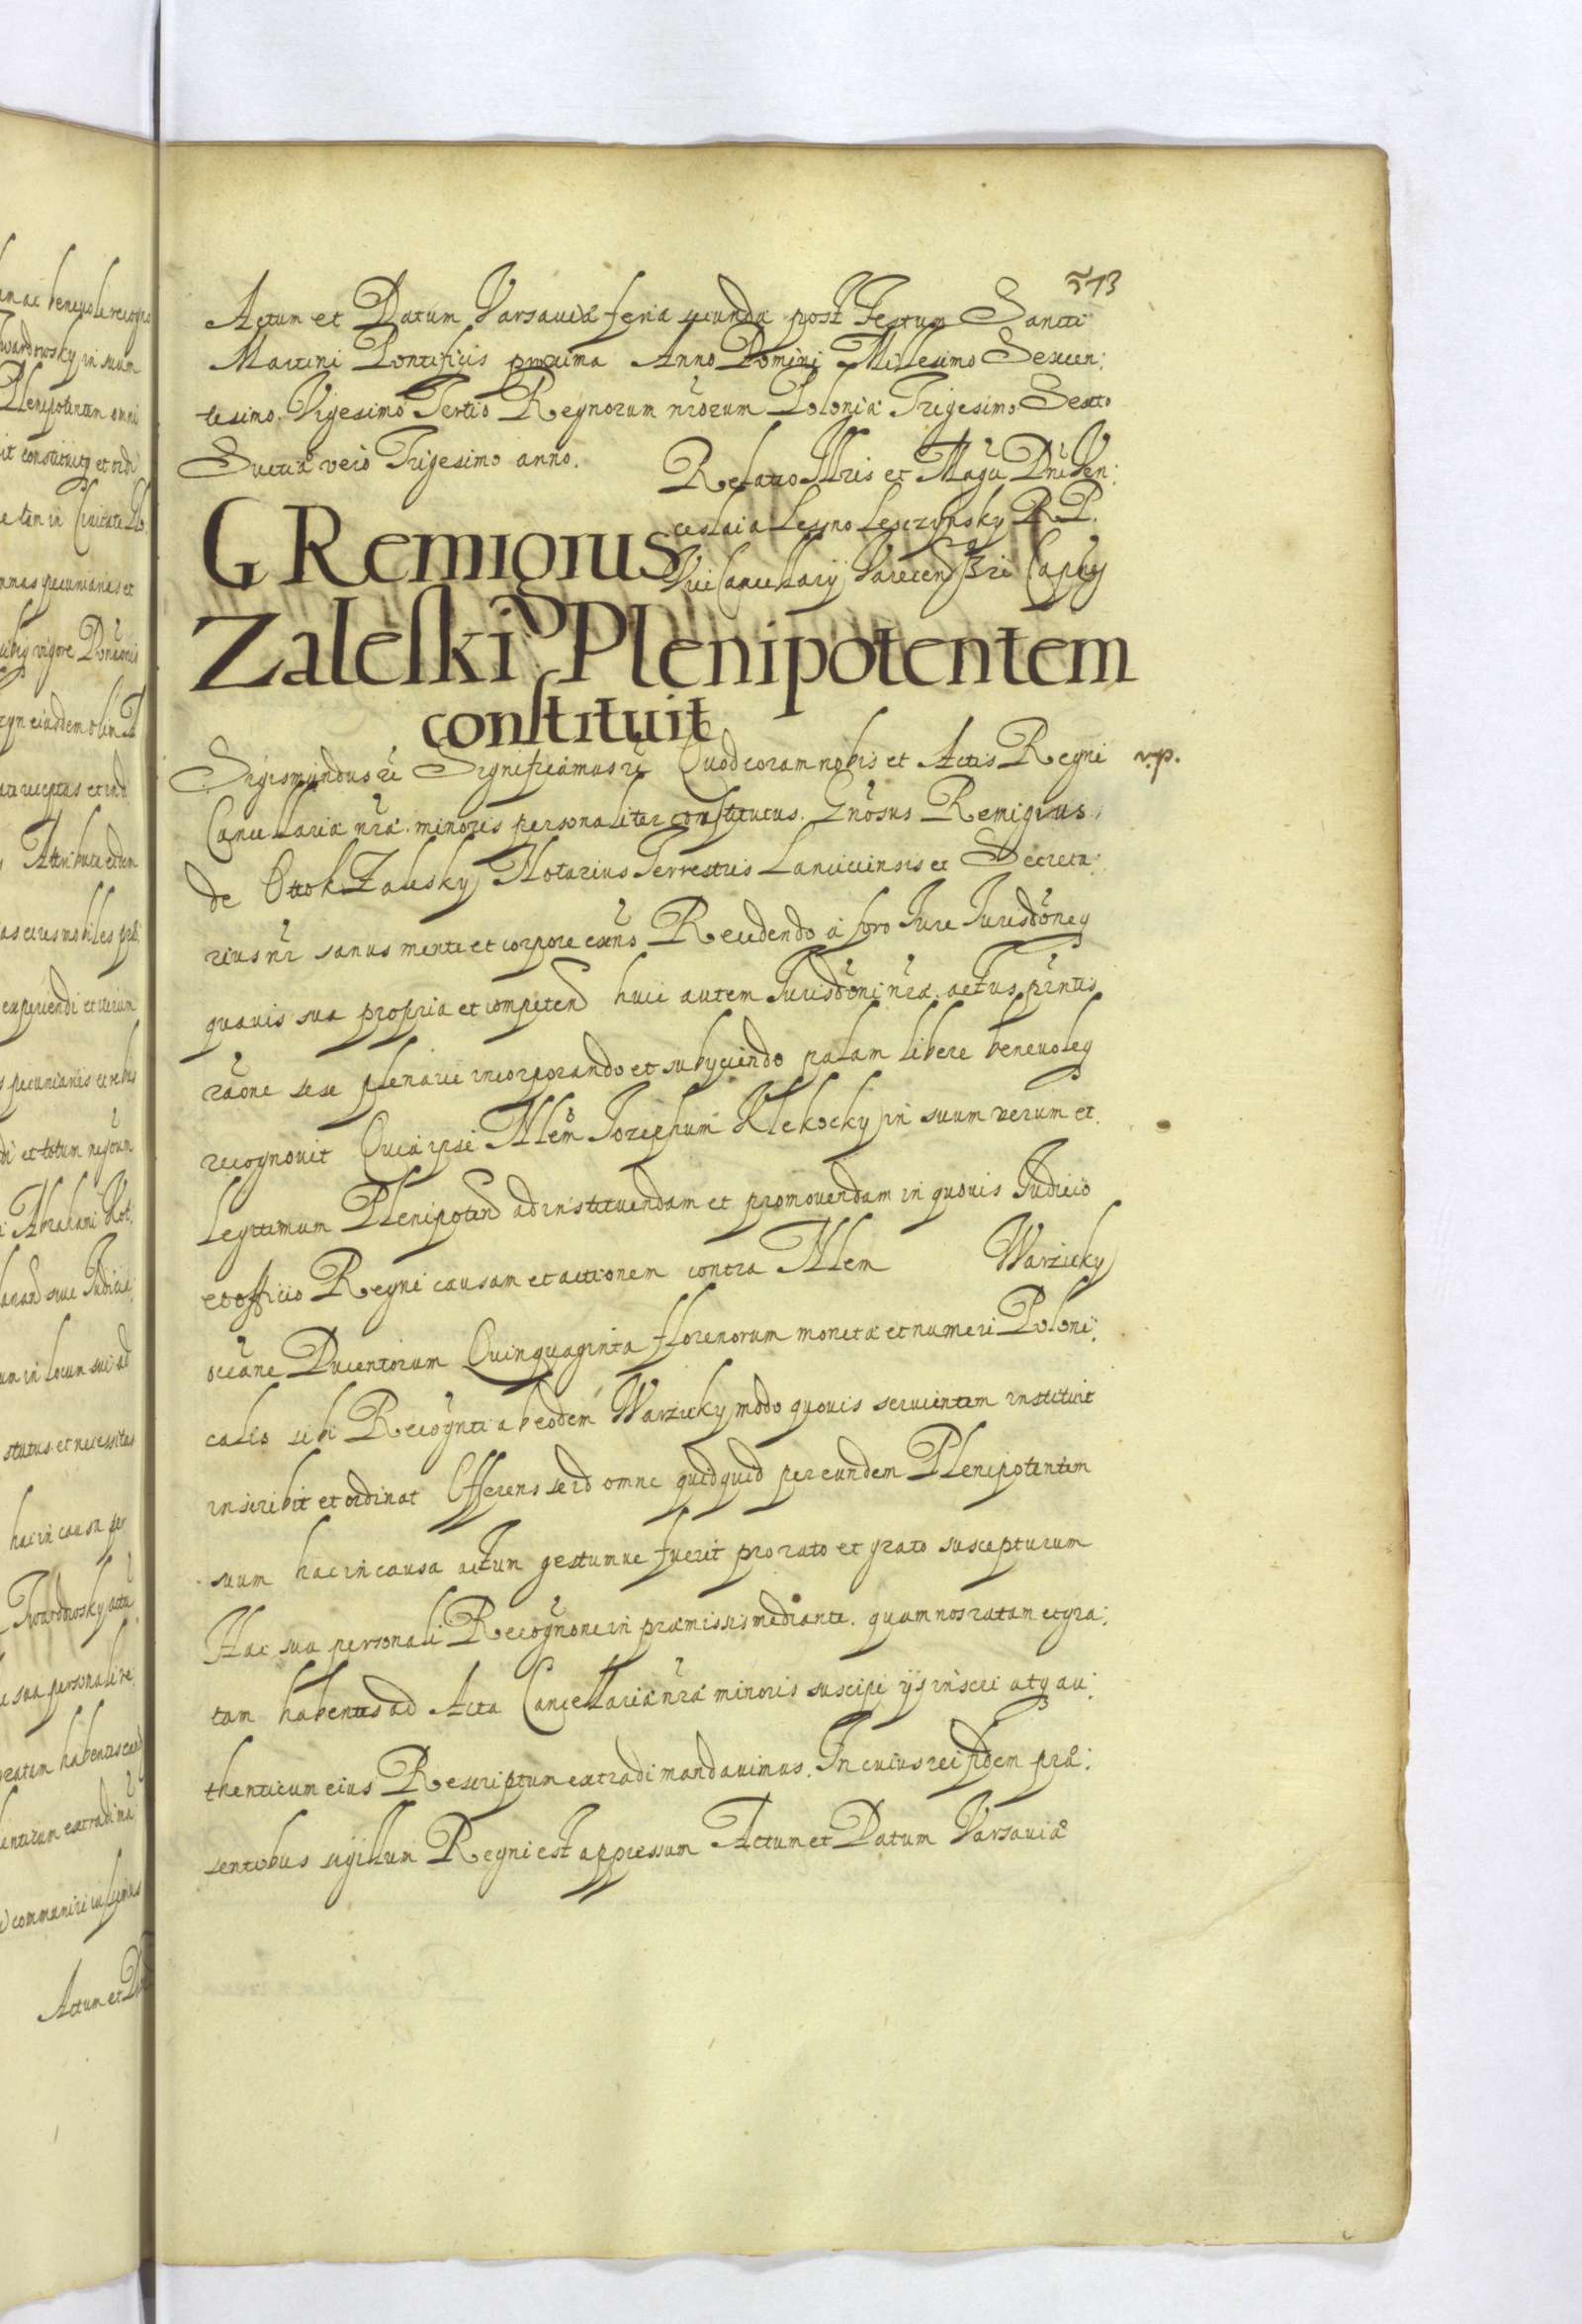 513
Actum et Datum Varsaviæ feria secunda post Festum Sancti
Martini Pontificis proxima Anno Domini Millesimo Sexcen:
tesimo Vigesimo Tertio Regnorum nrorum Poloniæ Trigesimo Sexto
Sueciæ vero Trigesimo anno.
Relatio Illris et Magci Dni Ven:
ceslai a Lesno Lesczynsky R. P.
Vice Cancellarij Varecen Capnei
G Remigius
Zaleski Plenipotentem
constituit
Sigismundus etc Significamus etc Quod coram nobis et Actis Regni
v.p.
Cancellariæ nræ minoris personaliter constitutus Gnosus Remigius
de Ottok Zalesky Notarius Terrestris Lanciciensis et Secreta:
rius nr sanus mente et corpore existens Recedendo a foro Jure Jurisdoneq
quavis sua propria et competen huic autem Jurisdoni nræ actus prntis
raone sese plenarie incorporando et subyciendo palam libere benevoleq
recognovit Quia ipse Nlem Josephum Klekocky in suum verum et
legittimum Plenipoten ad instituendam et promovendam in quovis Judicio
et officio Regni causam et actionem contra Nlem Warzicky
occane Ducentorum Quinquaginta florenorum monetæ et numeri Poloni:
calis sibi Recognti ab eodem Warzicky modo quovis servientem instituit
inscribit et ordinat Offerens se id omne quidquid per eundem Plenipotentem
suum hac in causa actum gestumve fuerit pro rato et grato suscepturum
Hac sua personali Recognone in præmissis mediante quam nos ratam et gra:
tam habentes ad Acta Cancellariæ nræ minoris suscipi ijs inscri atq au:
thenticum eius Rescriptum extradi mandavimus. In cuius rei fidem præ:
sentibus sigillum Regni est appressum Actum et Datum Varsaviæ